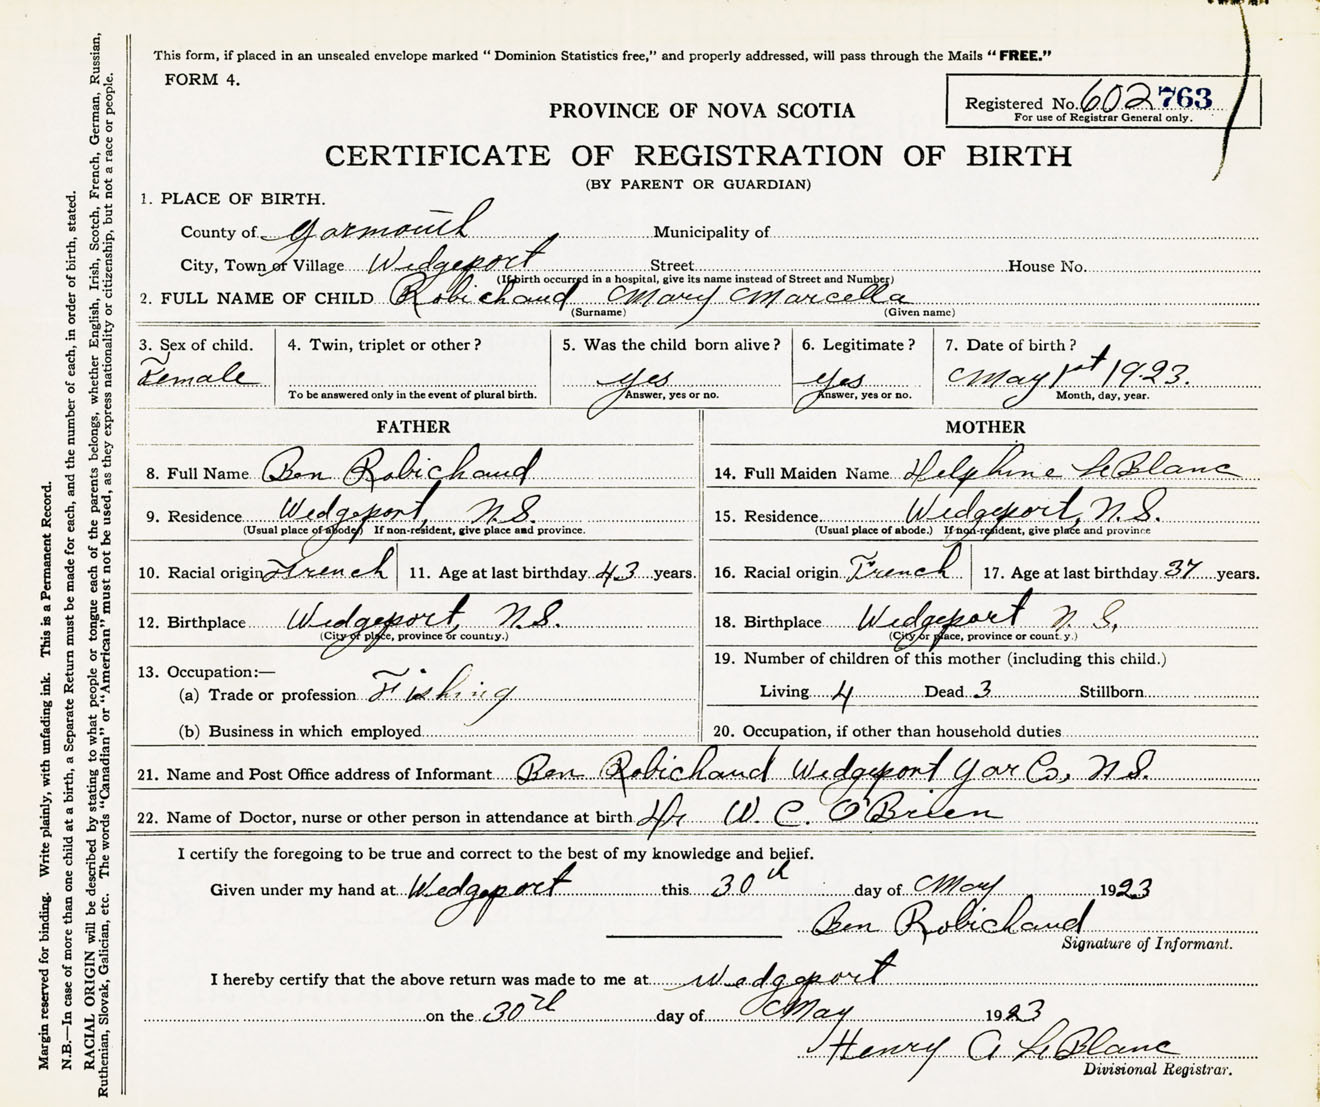 This form, if placed in an unsealed envelope marked "Dominion Statistics free," and properly addressed, will pass through the Mails "FREE."
FORM 4.
Registered No. 602763
For use of Registrar General only.
PROVINCE OF NOVA SCOTIA
CERTIFICATE OF REGISTRATION OF BIRTH
(BY PARENT OR GUARDIAN)
1. PLACE OF BIRTH.
County of Yarmouth Municipality of
City, Town or Village Wedgeport Street House No.
(If birth occurred in a hospital, give its name instead of Street and Number)
2. FULL NAME OF CHILD Robichaud Mary Marcella
(Surname) (Given name)
3. Sex of child. 4. Twin, triplet or other? 5. Was the child born alive? 6. Legitimate? 7. Date of birth?
Female yes yes May 1st 1923.
To be answered only in the event of plural birth. Answer, yes or no. Answer, yes or no. Month, day, year.
FATHER MOTHER
8. Full Name Ben Robichaud 14. Full Maiden Name Delphine LeBlanc
9. Residence Wedgeport, N.S. 15. Residence Wedgeport, N.S.
(Usual place of abode) If non-resident, give place and province. (Usual place of abode.) If non-resident, give place and province
10. Racial origin French 11. Age at last birthday 43 years. 16. Racial origin French 17. Age at last birthday 37 years.
12. Birthplace Wedgeport, N.S. 18. Birthplace Wedgeport N.S.
(City or place, province or country.) (City or place, province or country.)
13. Occupation:— 19. Number of children of this mother (including this child.)
(a) Trade or profession Fishing Living 4 Dead 3 Stillborn
(b) Business in which employed 20. Occupation, if other than household duties
21. Name and Post Office address of Informant Ben Robichaud Wedgeport Yar Co, N.S.
22. Name of Doctor, nurse or other person in attendance at birth Dr W. C. O'Brien
I certify the foregoing to be true and correct to the best of my knowledge and belief.
Given under my hand at Wedgeport this 30th day of May 1923
Ben Robichaud
Signature of Informant.
I hereby certify that the above return was made to me at Wedgeport
on the 30th day of May 1923
Henry A LeBlanc
Divisional Registrar.
Margin reserved for binding. Write plainly, with unfading ink. This is a Permanent Record.
N.B.—In case of more than one child at a birth, a Separate Return must be made for each, and the number of each, in order of birth, stated.
RACIAL ORIGIN will be described by stating to what people or tongue each of the parents belongs, whether English, Irish, Scotch, French, German, Russian,
Ruthenian, Slovak, Galician, etc. The words "Canadian" or "American" must not be used, as they express nationality or citizenship, but not a race or people.